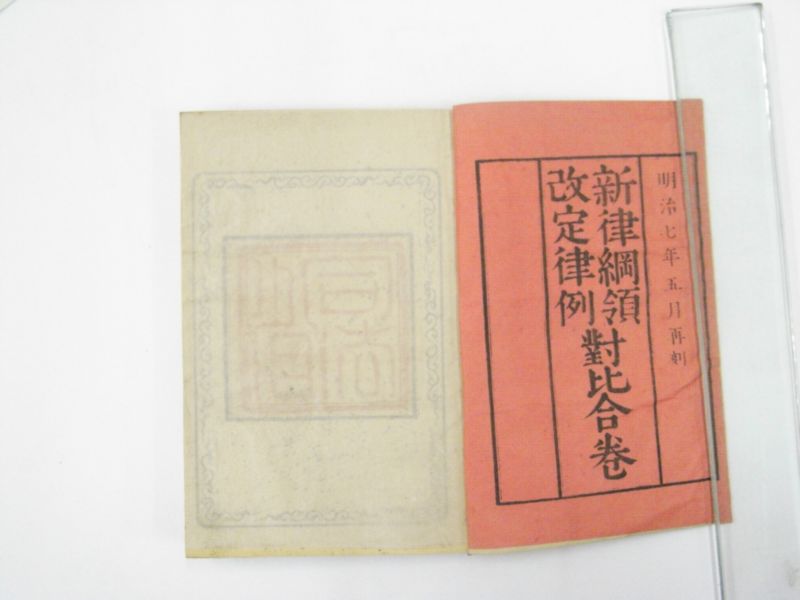 明治七年五月再刻
新律綱領
改定律例
對比合卷